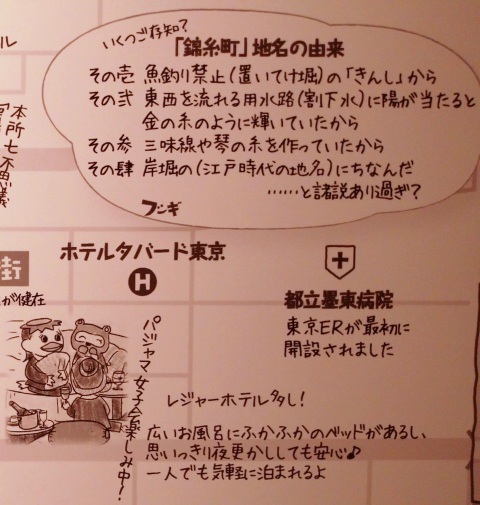 ル
いくつご存知?
「錦糸町」地名の由来
その壱 魚釣り禁止(置いてけ堀)の「きんし」から
その弐 東西を流れる用水路(割下水)に陽が当たると
金の糸のように輝いていたから
その参 三味線や琴の糸を作っていたから
その肆 岸堀の(江戸時代の地名)にちなんだ
……と諸説あり過ぎ?
フシギ
本所七不思議
街
が健在
ホテルタバード東京
H
パジャマ女子会楽しみ中!
都立墨東病院
東京ERが最初に
開設されました
レジャーホテル多し!
広いお風呂にふかふかのベッドがあるし、
思いっきり夜更かししても安心♪
一人でも気軽に泊まれるよ